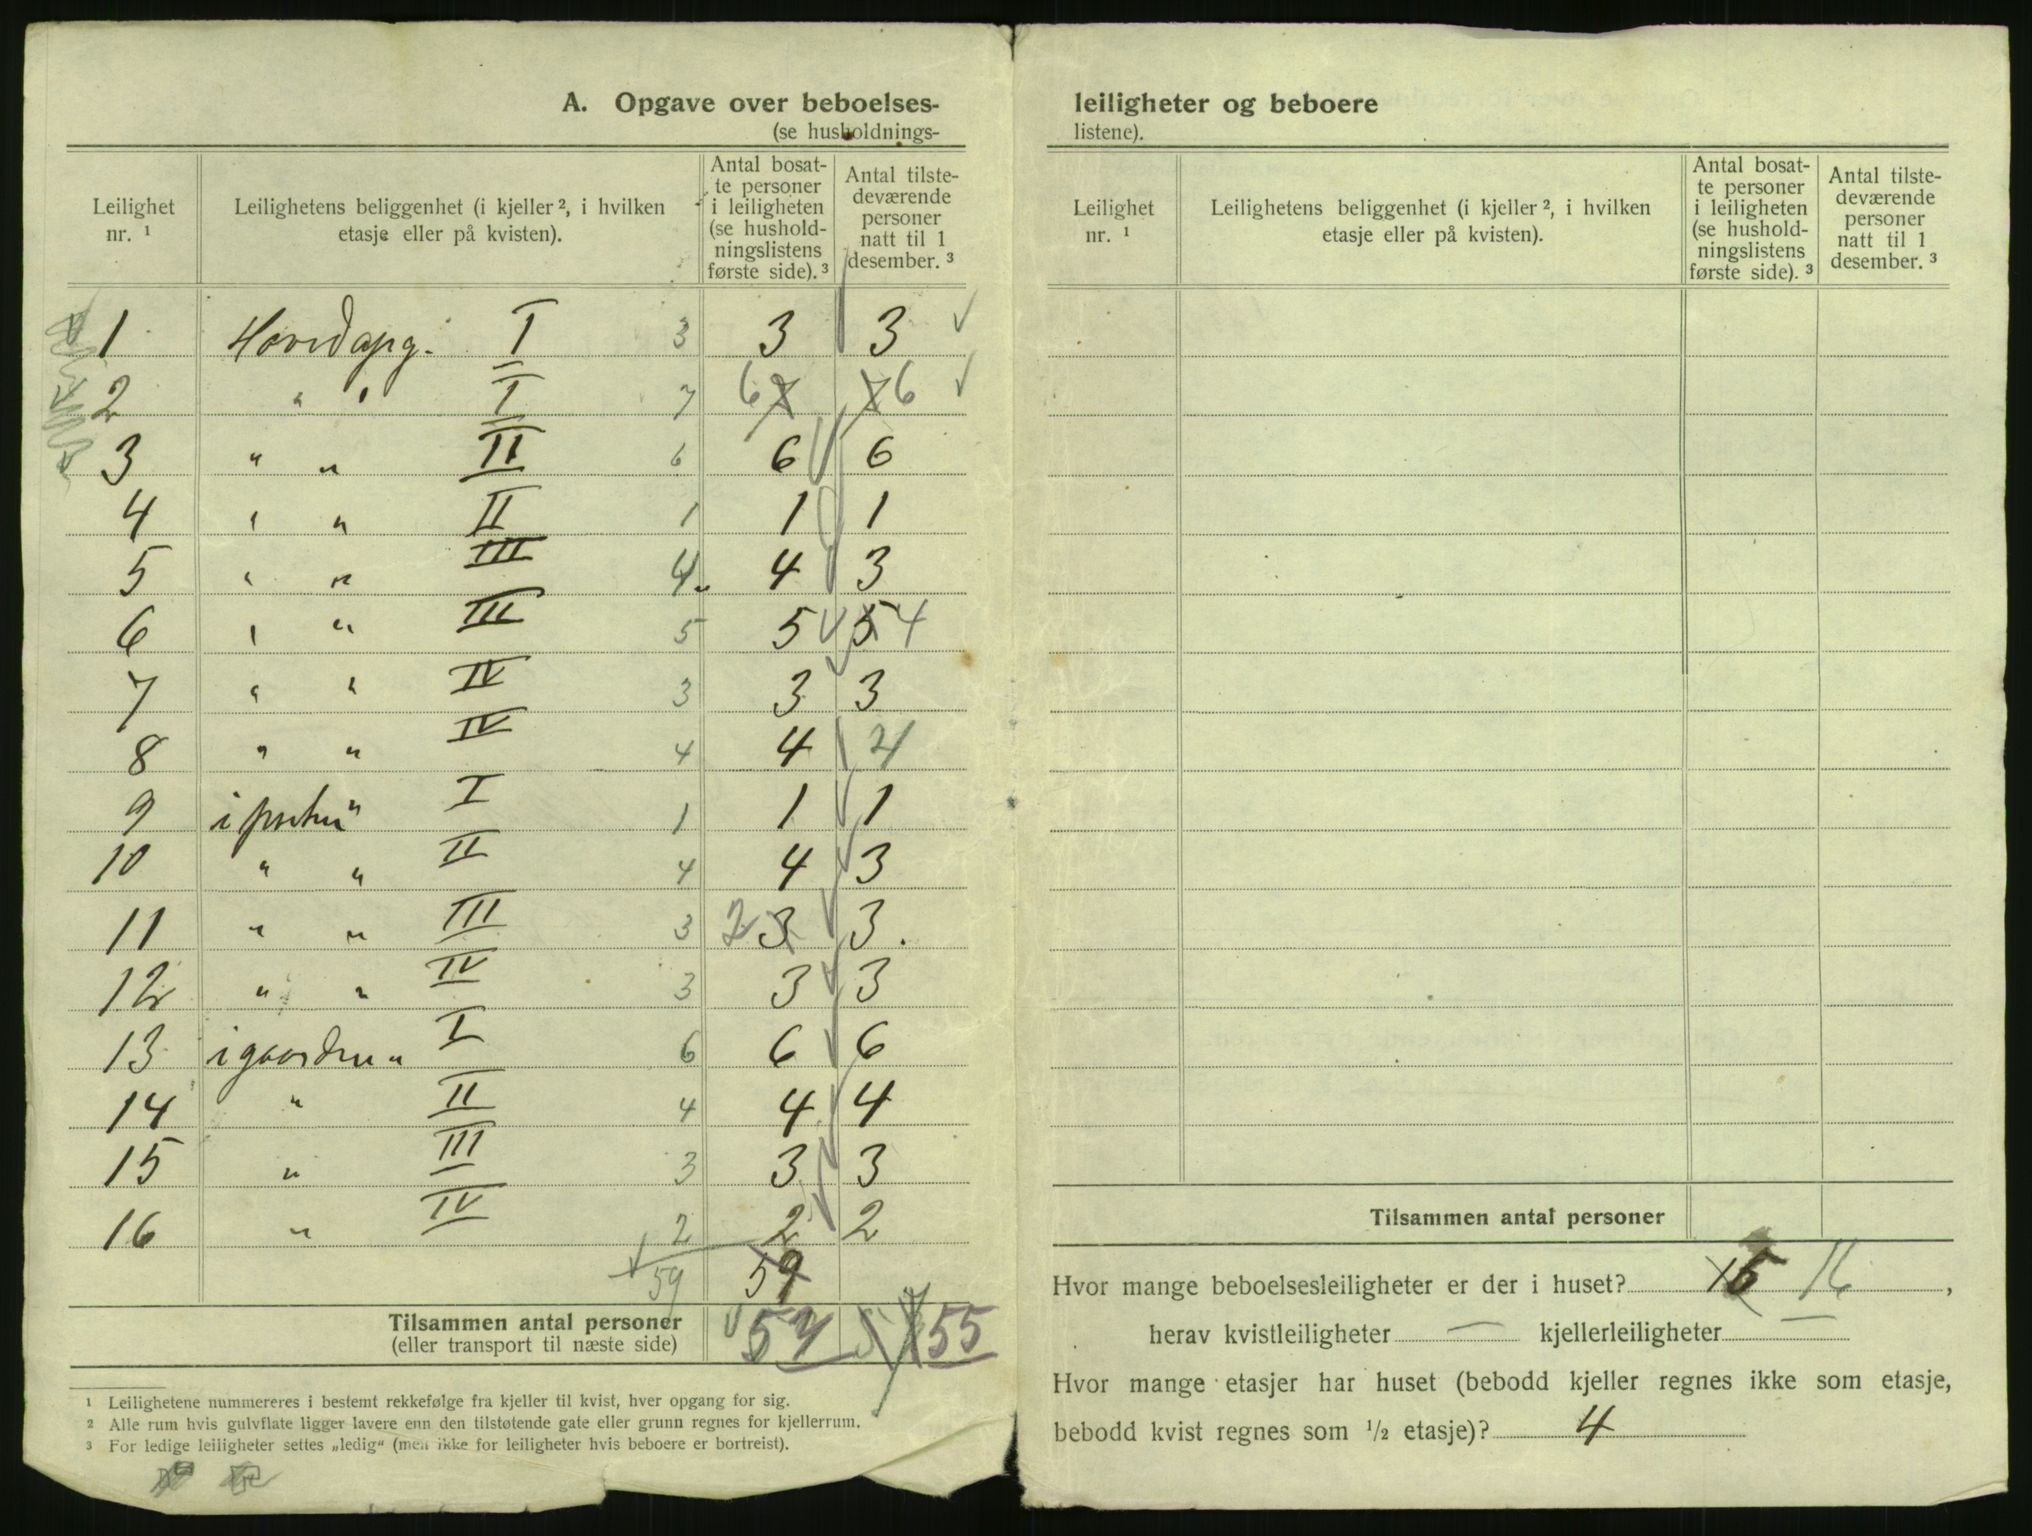 A. Opgave over beboelses-
(se husholdnings-
Leilighet nr. ¹
Leilighetens beliggenhet (i kjeller ², i hvilken etasje eller på kvisten).
Antal bosat-
te personer
i leiligheten
(se hushold-
ningslistens
første side). ³
Antal tilste-
deværende
personer
natt til 1
desember. ³
1 Hovedopg. I 3 3 3
2 " " I 7 6 7 7 6
3 " " II 6 6 6
4 " " II 1 1 1
5 " " III 4 4 3
6 " " III 5 5 5 4
7 " " IV 3 3 3
8 " " IV 4 4
9 i I 1 1 1
10 " " II 4 4 3
11 " " III 3 2 3 3.
12 " " IV 3 3 3
13 i gaarden " I 6 6 6
14 " II 4 4 4
15 " III 3 3 3
16 " IV 2 2 2
59 59
Tilsammen antal personer 55
(eller transport til næste side)
¹ Leilighetene nummereres i bestemt rekkefølge fra kjeller til kvist, hver opgang for sig.
² Alle rum hvis gulvflate ligger lavere enn den tilstøtende gate eller grunn regnes for kjellerrum.
³ For ledige leiligheter settes „ledig“ (men ikke for leiligheter hvis beboere er bortreist).
leiligheter og beboere
listene).
Leilighet nr. ¹
Leilighetens beliggenhet (i kjeller ², i hvilken etasje eller på kvisten).
Antal bosat-
te personer
i leiligheten
(se hushold-
ningslistens
første side). ³
Antal tilste-
deværende
personer
natt til 1
desember. ³
Tilsammen antal personer
Hvor mange beboelsesleiligheter er der i huset? 15 16,
herav kvistleiligheter — kjellerleiligheter —
Hvor mange etasjer har huset (bebodd kjeller regnes ikke som etasje,
bebodd kvist regnes som ½ etasje)? 4